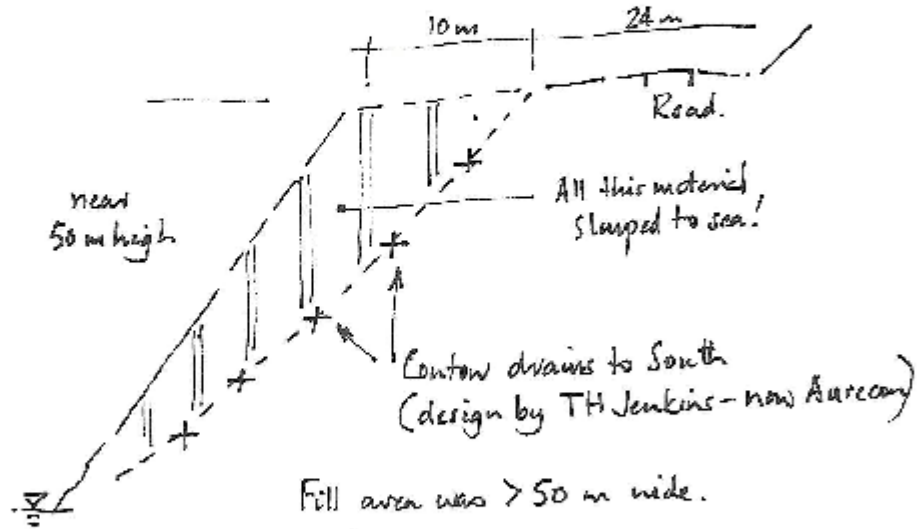 10m 24m
Road.
near
50 m high
All this material
Slumped to sea!
Contour drains to South
(design by TH Jenkins - now Aurecon)
Fill area was > 50 m wide.